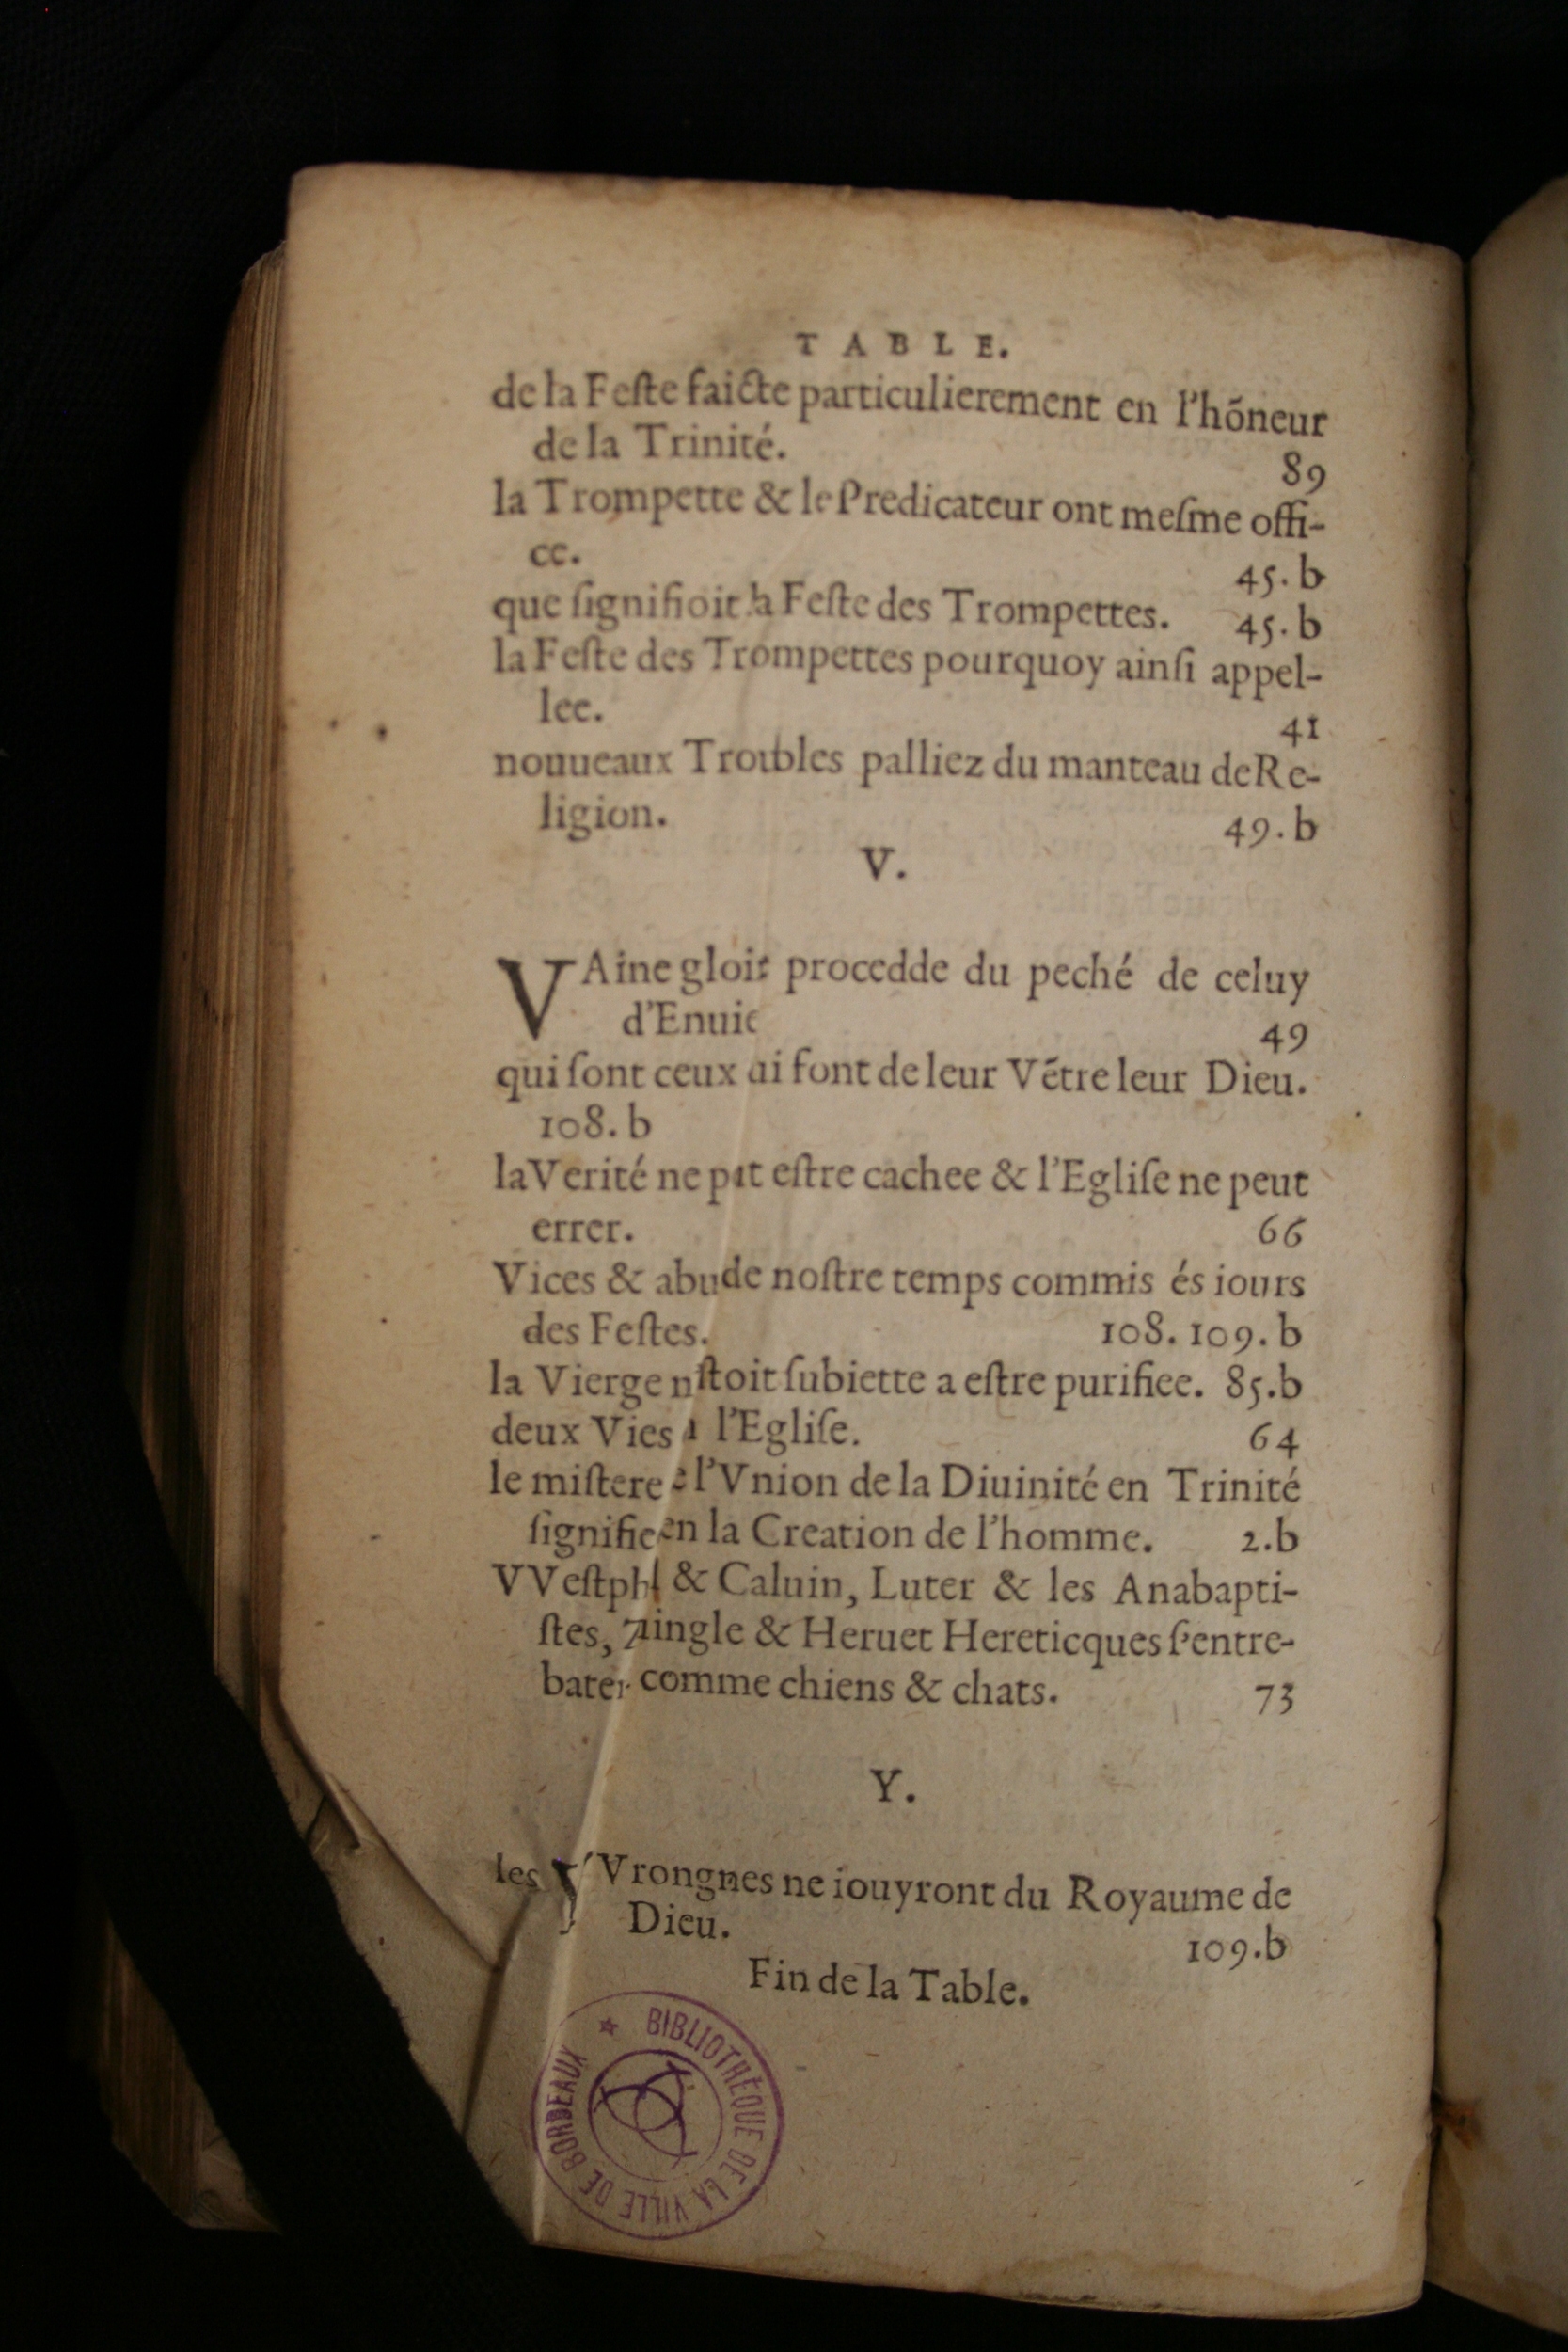 TABLE.
de la Feſte faicte particulierement en l'hõneur
de la Trinité. 89
la Trompette & le Predicateur ont meſme offi-
ce. 45. b
que ſignifioit la Feſte des Trompettes. 45. b
la Feſte des Trompettes pourquoy ainſi appel-
lee. 41
nouueaux Troubles palliez du manteau de Re-
ligion. 49. b
V.
VAine procedde du peché de celuy
d'Enuie 49
qui ſont ceux font de leur Vẽtre leur Dieu.
108. b
la Verité ne eſtre cachee & l'Egliſe ne peut
errer. 66
Vices & de noſtre temps commis és iours
des Feſtes. 108. 109. b
la Vierge ſubiette a eſtre purifiee. 85.b
deux Vies l'Egliſe. 64
le miſtere l'Vnion de la Diuinité en Trinité
en la Creation de l'homme. 2.b
& Caluin, Luter & les Anabapti-
ſtes, & Heruet Hereticques ſ'entre-
comme chiens & chats. 73
Y.
les YVrongnes ne iouyront du Royaume de
Dieu. 109.b
Fin de la Table.
BIBLIOTHÈQUE DE LA VILLE DE BORDEAUX